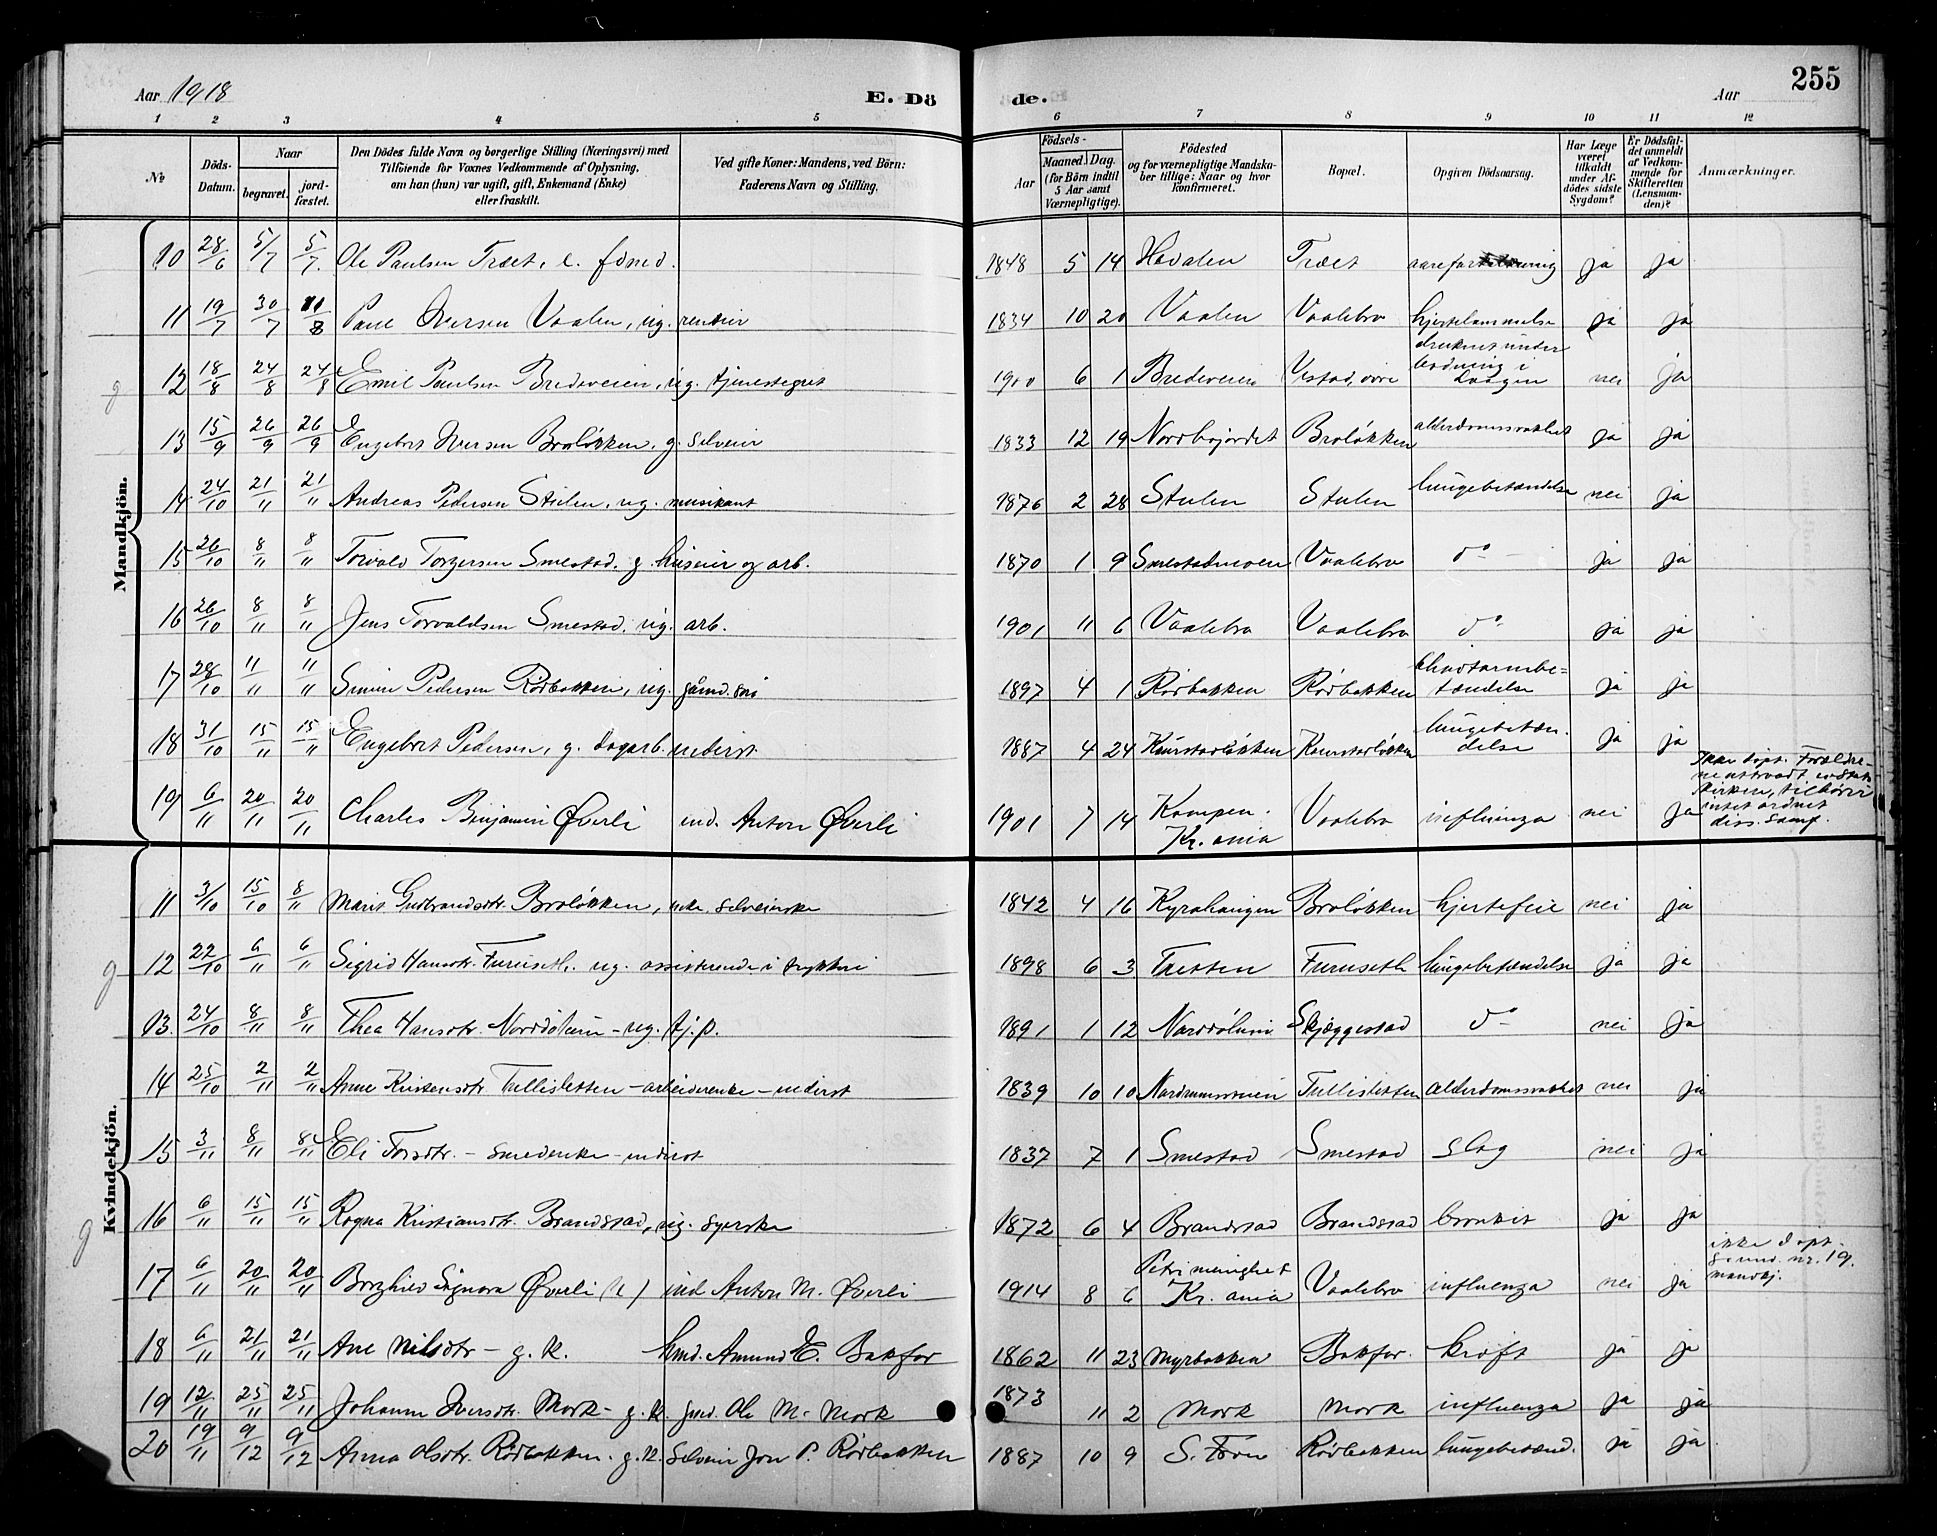 Aar 1918 E. Dö de. Aar 255
1 2 3 4 5 6 7 8 9 10 11 12
№ Döds-Datum. Naar begravet. jordfæstet. Den Dödes fulde Navn og borgerlige Stilling (Næringsvei) med Tilföiende for Voxnes Vedkommende af Oplysning, om han (hun) var ugift, gift, Enkemand (Enke) eller fraskilt. Ved gifte Koner: Mandens, ved Börn: Faderens Navn og Stilling. Födsels- Aar Maaned. Dag. (for Börn indtil 5 Aar samt Værnepligtige). Födested og for værnepligtige Mandskaber tillige: Naar og hvor konfirmeret. Bopæl. Opgiven Dödsaarsag. Har Læge været tilkaldt under Afdödes sidste Sygdom? Er Dödsfaldet anmeldt af Vedkommende for Skifteretten (Lensmanden)? Anmærkninger.
Mandkjön.
10 28/6 5/7 5/7 Ole Paulsen Træet, e. 1848 5 14 Træet ja ja
11 19/7 30/7 Paul Iversen Vaalen, ug. rentier 1834 10 20 Vaalen Vaalebro hjertelammelse ja ja
12 18/8 24/8 24/8 Emil Paulsen Bredeveien, ug. tjenestegut 1900 6 1 Bredeveien Vestad, øvre druknet under badning i Laagen nei ja
13 15/9 26/9 26/9 Engebret Iversen Braløkken, g. selveier 1833 12 19 Braløkken alderdomssvakhet ja ja
14 24/10 21/11 21/11 Andreas Pedersen Stulen, ug. musikant 1876 2 28 Stulen Stulen lungebetændelse nei ja
15 26/10 8/11 8/11 Torvald Torgersen Smestad, g. huseier og arb. 1870 1 9 Smestadmoen Vaalebro do ja ja
16 26/10 8/11 8/11 Jens Torvaldsen Smestad, ug. arb. 1901 11 6 Vaalebro Vaalebro do ja ja
17 28/10 11/11 11/11 Simen Pedersen Rødbakken, ug. 1897 4 1 Rødbakken Rødbakken blindtarmbetændelse ja ja
18 31/10 15/11 15/11 Engebret Pedersen, g. dagarb. inderst 1887 4 24 Knurstadløkken Knurstadløkken lungebetændelse ja ja
19 6/11 20/11 20/11 Charles Benjamin Øverli ind. Anton Øverli 1901 7 14 Kampen Kr.ania Vaalebro influenza nei ja Ikke døpt. Forældrene uttraadt av Statskirken, tilhører intet ordnet diss. samf.
Kvindekjön.
11 3/10 15/10 8/11 Marit Gudbrandsdtr. Braløkken, enke, selveierske 1842 4 16 Kyrahaugen Braløkken hjertefeil nei ja
g 12 22/10 6/11 6/11 Sigrid Hansdtr. Furuseth, ug. assisterende i trykkeri 1898 6 3 Tretten Furuseth lungebetændelse ja ja
13. 24/10 8/11 8/11 Thea Hansdtr. Norddølum - ug. tj.p. 1891 1 12 Skjæggestad do nei ja
14 25/10 2/11 2/11 Anne Kristensdtr. Tullisletten - arbeiderenke - inderst 1839 10 10 Nordrumsveien Tullisletten alderdomssvakhet nei ja
15 3/11 8/11 8/11 Eli Torsdtr. - smedenke - inderst 1837 7 1 Smestad Smestad slag nei ja
g 16 6/11 15/11 15/11 Ragna Kristiansdtr. Brandstad, ug. syerske 1872 6 4 Brandstad Brandstad bronkit ja ja
17 6/11 20/11 20/11 Borghild Signora Øverli ind Anton M. Øverli 1914 8 6 Petri menighet Kr.ania Vaalebro influenza nei ja ikke døpt. Se md. nr. 19. mandkj.
18 6/11 21/11 21/11 Ane Nilsdtr - g.k. Amund E. Bakfor 1862 11 23 Myrbakken Bakfor. kræft ja ja
19 12/11 25/11 25/11 Johanne Iversdtr. Mork - g.k. gmd. Ole M. Mork 1873 11 2 Mork Mork influenza ja ja
20 19/11 9/12 9/12 Anna Olsdtr. Rødbakken - g.k. Selveier Jon P. Rødbakken 1887 10 9 S. Fron Rødbakken lungebetænd. ja ja